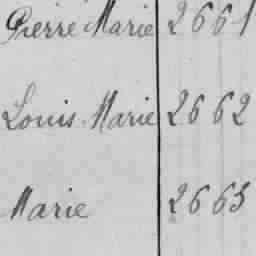 Pierre Marie 2661
Louis Marie 2662
Marie 2663